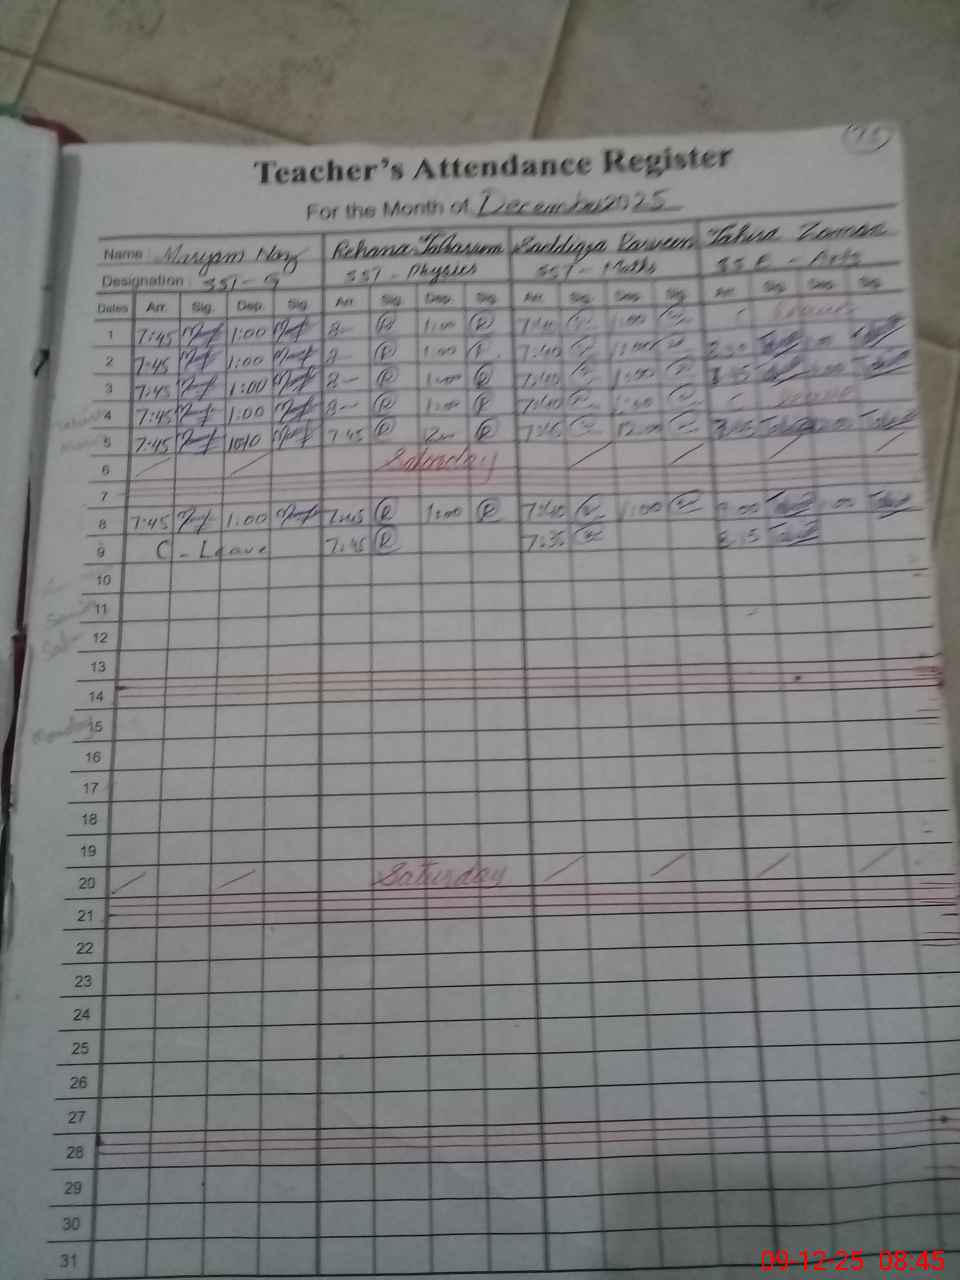 75
Teacher's Attendance Register
For the Month of December 2025
Name Maryam Naz Rehana Tabassum Saddiqa Parveen Tahira Zaman
Designation SST - G SST - Physics SST - Maths SSE - Arts
Dates Arr. Sig. Dep. Sig. Arr Sig. Dep. Sig. Arr. Sig. Dep. Sig. Arr. Sig. Dep. Sig.
1 7:45 1:00 8- R 1:00 R 7:40 1:00 C Leave
2 7:45 1:00 8- R 1:00 R 7:40 1:00
3 7:45 1:00 8- R 1:00 R 7:40 1:00 8:15 1:00
4 7:45 1:00 8- R 1:00 R 7:40 1:00 C Leave
5 7:45 7:45 R R 12:00
6 Saturday
7
8 7:45 1:00 7:45 R 1:00 R 7:40 1:00 1:00
9 C - Leave 7:45 R 7:35 8:15
10
11
12
13
14
Monday 15
16
17
18
19
20 Saturday
21
22
23
24
25
26
27
28
29
30
31
09-12-25 08:45